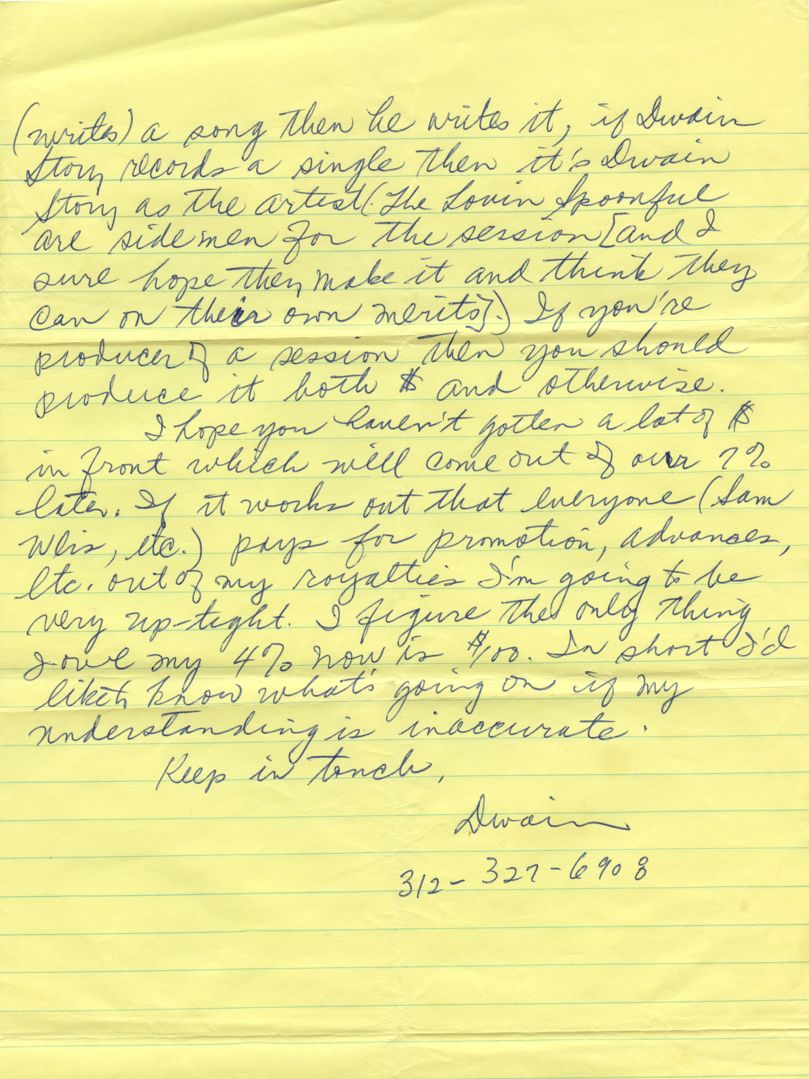 (writes) a song then he writes it, if Dwain
Story records a single then it's Dwain
Story as the artist (The Lovin Spoonful
are sidemen for the session [and I
sure hope they make it and think they
can on their own merits].) If you're
producer of a session then you should
produce it both $ and otherwise.
I hope you haven't gotten a lot of $
in front which will come out of our 7%
later. If it works out that everyone (Sam
Weis, etc.) pays for promotion, advances,
etc. out of my royalties I'm going to be
very up-tight. I figure the only thing
I owe my 4% now is $100. In short I'd
like to know what's going on if my
understanding is inaccurate.
Keep in touch,
Dwain
312-327-6908